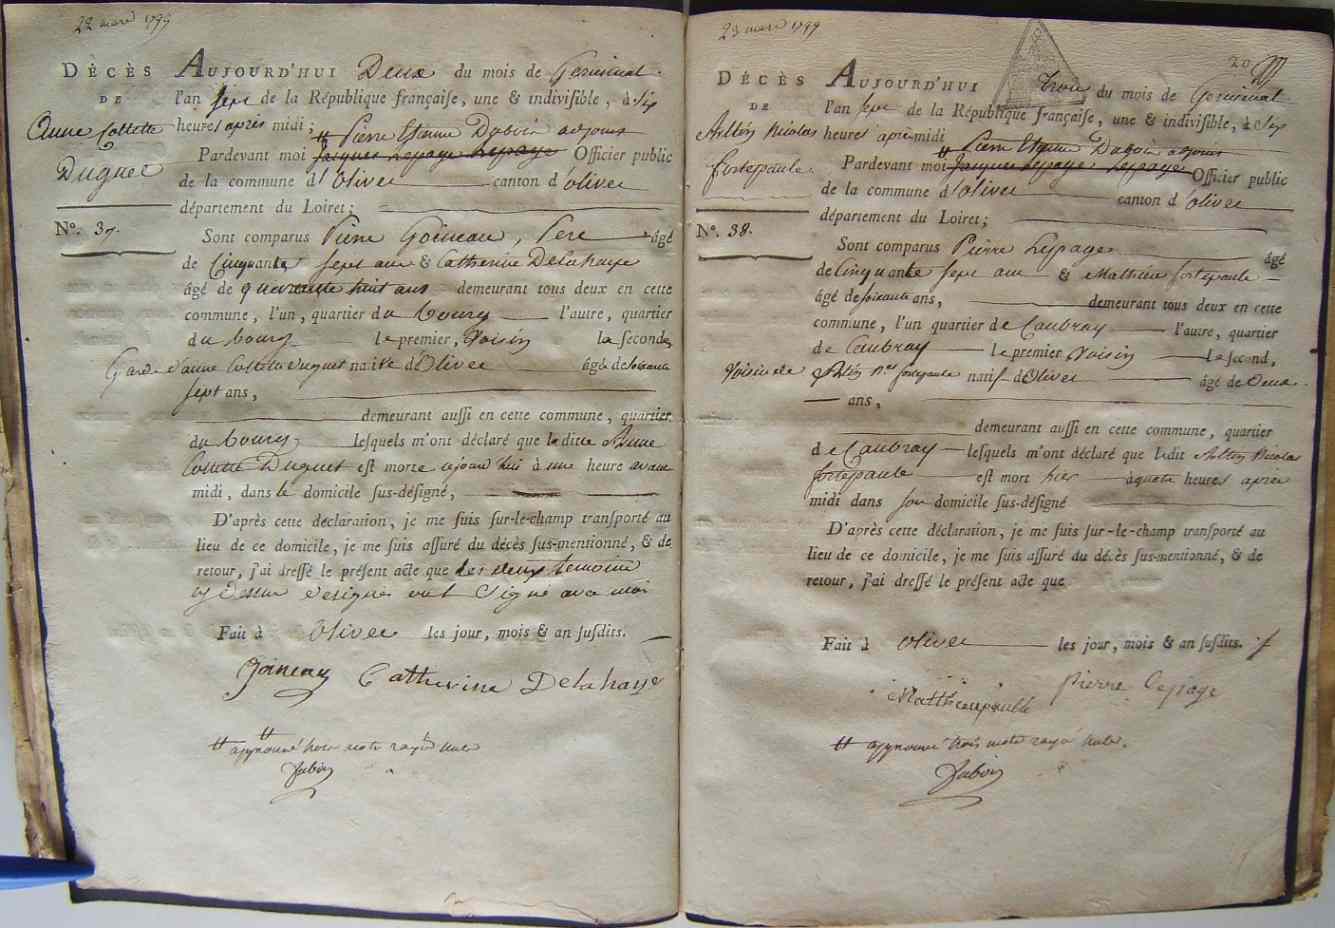 22 mars 1799
DÈCÈS
DE
Anne Collette
Duguet
N°. 37.
AUJOURD'HUI Deux du mois de Germinal
l'an sept de la République françaiſe, une & indiviſible, à Six
heures après midi;
Pierre Etienne Duboin adjoint
Pardevant moi Jacques Lepage Lepage Officier public
de la commune d'Olivet canton d'olivet
département du Loiret;
Sont comparus Pierre Goineau, Pere âgé
de Cinquante sept ans & Catherine Delahaye
âgé de quarante huit ans demeurant tous deux en cette
commune, l'un, quartier du bourg l'autre, quartier
du bourg le premier, Voisin la seconde,
Garde d'anne Collette duguet native d'Olivet âgé de soixante
sept ans,
demeurant auſſi en cette commune, quartier
du bourg, leſquels m'ont déclaré que laditte Anne
Collette Duguet eſt morte ajourd'hui à une heure avant
midi, dans le domicile ſus-déſigné,
D'après cette déclaration, je me ſuis ſur-le-champ tranſporté au
lieu de ce domicile, je me ſuis aſſuré du décès ſus-mentionné, & de
retour, j'ai dreſſé le préſent acte que les deux temoins
cy Dessus designés ont Signé avec moi
Fait à Olivet les jour, mois & an ſuſdits.
Goineau Catherine Delahaye
approuvé trois mots rayés nuls
Duboin
23 mars 1799
20
DÉCÈS
DE
Nicolas
fortepaule
N°. 38.
AUJOURD'HUI Trois du mois de Germinal
l'an sept de la République françaiſe, une & indiviſible, à Six
heures après midi
Pierre Etienne Duboin adjoint
Pardevant moi Jacques Lepage Lepage Officier public
de la commune d'Olivet canton d'olivet
département du Loiret;
Sont comparus Pierre Lepage âgé
de Cinquante sept ans & Mathieu fortepaule
âgé de soixante ans, demeurant tous deux en cette
commune, l'un quartier de Caubray l'autre, quartier
de Caubray le premier Voisin le ſecond,
Voisin de fortepaule natif d'Olivet âgé de Deux
ans,
demeurant auſſi en cette commune, quartier
de Caubray leſquels m'ont déclaré que ledit Nicolas
fortepaule eſt mort hier à quatre heures après
midi dans son domicile ſus-déſigné
D'après cette déclaration, je me ſuis ſur-le-champ tranſporté au
lieu de ce domicile, je me ſuis aſſuré du décès ſus-mentionné, & de
retour, j'ai dreſſé le préſent acte que
Fait à Olivet les jour, mois & an ſuſdits.
Pierre Lepage
approuvé trois mots rayés nuls.
Duboin